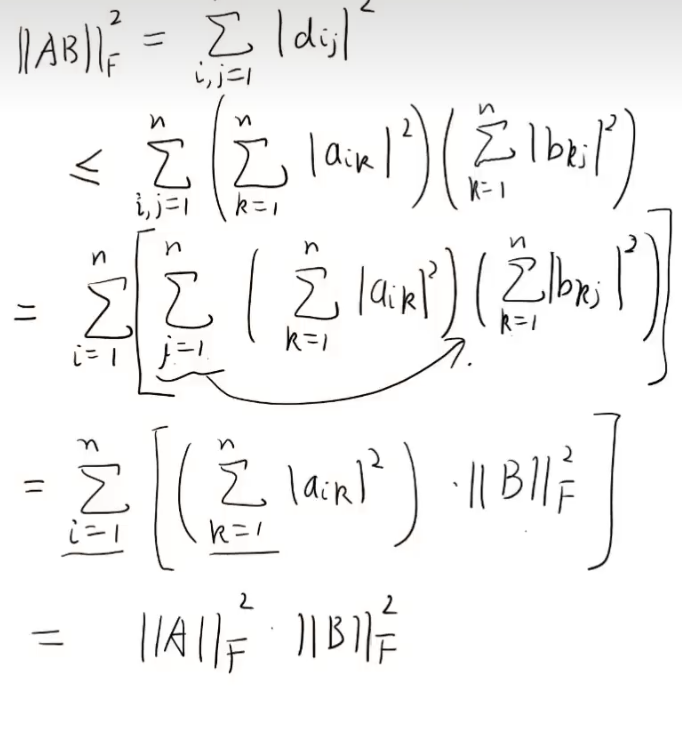 ||AB||_F^2 = ∑_{i,j=1} |d_{ij}|^2
≤ ∑_{i,j=1}^n (∑_{k=1}^n |a_{ik}|^2)(∑_{k=1}^n |b_{kj}|^2)
= ∑_{i=1}^n [∑_{j=1}^n (∑_{k=1}^n |a_{ik}|^2)(∑_{k=1}^n |b_{kj}|^2)]
= ∑_{i=1}^n [(∑_{k=1}^n |a_{ik}|^2) · ||B||_F^2]
= ||A||_F^2 · ||B||_F^2